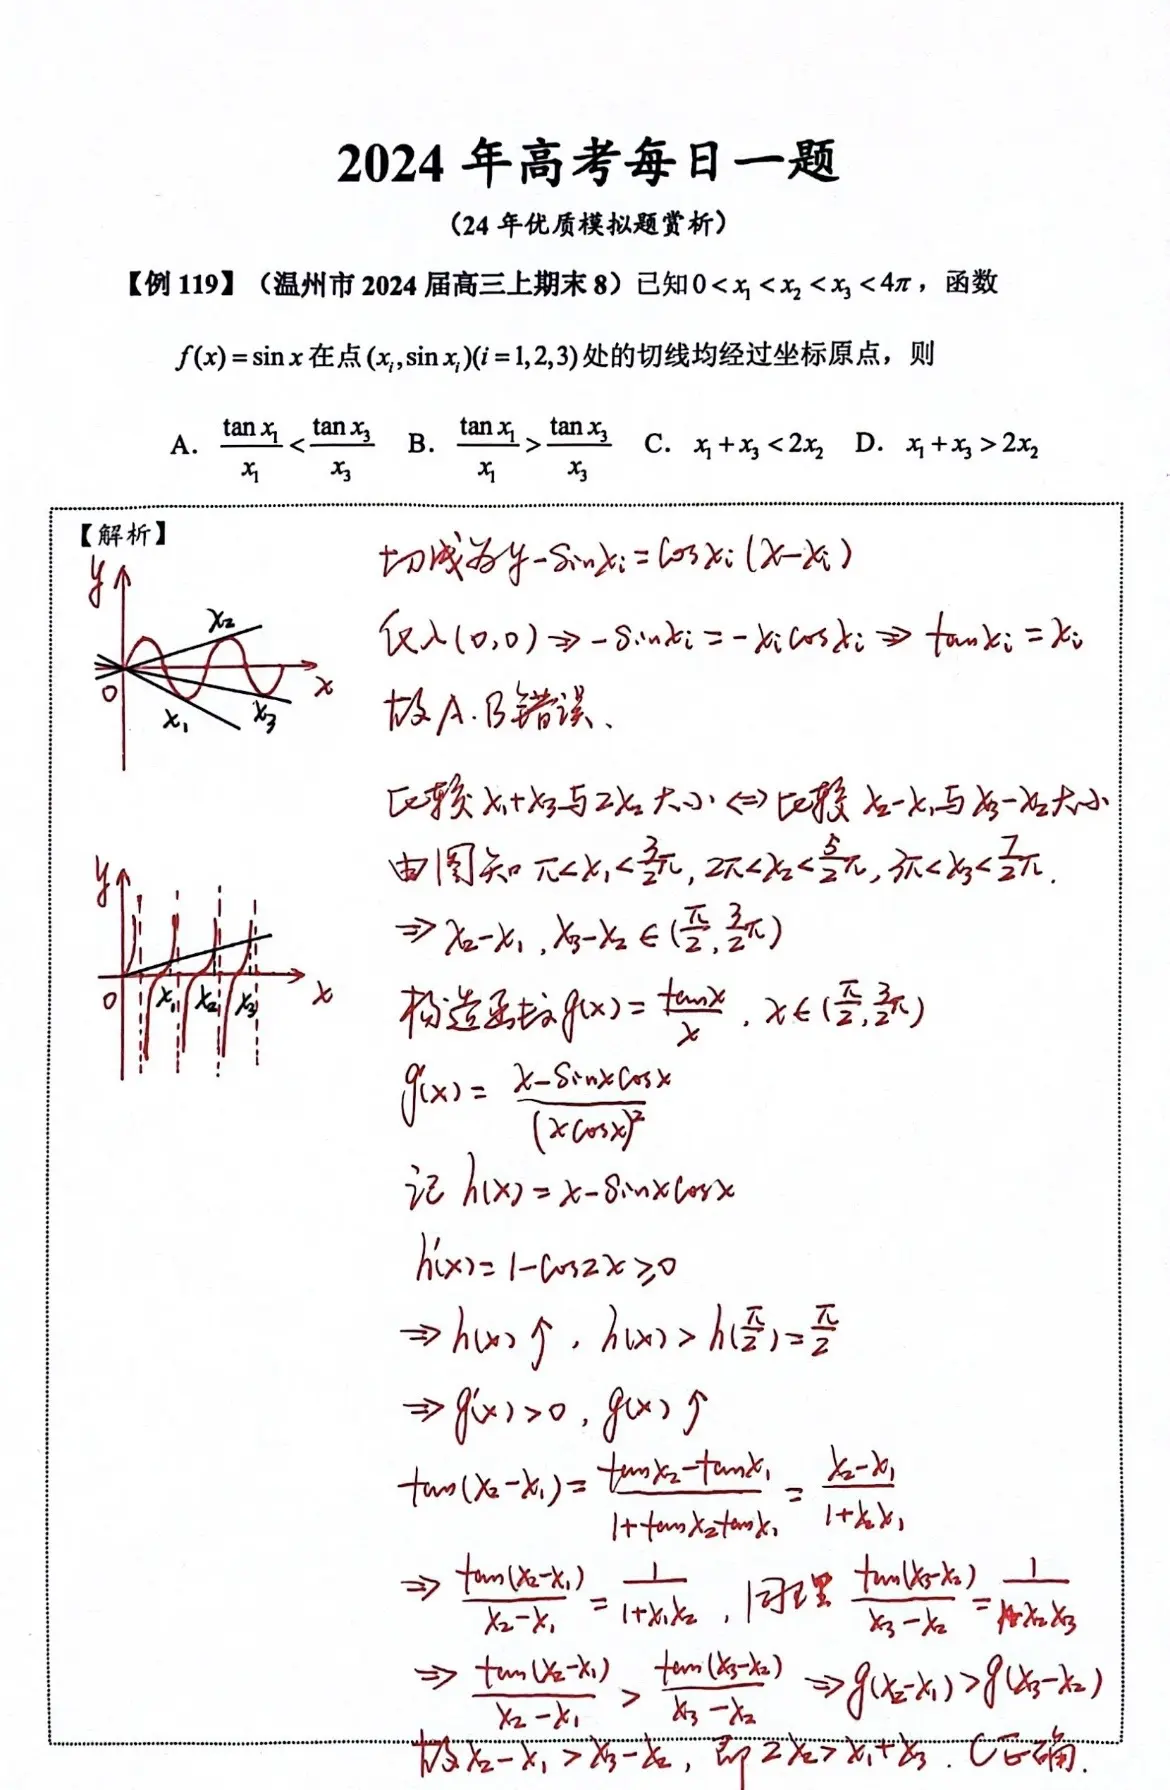 2024 年高考每日一题
(24 年优质模拟题赏析)
【例 119】(温州市 2024 届高三上期末 8) 已知 0 < x₁ < x₂ < x₃ < 4π，函数
f(x) = sin x 在点 (xᵢ, sin xᵢ)(i = 1,2,3) 处的切线均经过坐标原点，则
A. tan x₁/x₁ < tan x₃/x₃ B. tan x₁/x₁ > tan x₃/x₃ C. x₁ + x₃ < 2x₂ D. x₁ + x₃ > 2x₂
【解析】
y
x₂
O
x
x₁
x₃
y
O
x₁
x₂
x₃
x
切线为 y - sin xᵢ = cos xᵢ (x - xᵢ)
代入(0,0) ⇒ -sin xᵢ = -xᵢ cos xᵢ ⇒ tan xᵢ = xᵢ
故 A.B 错误、
比较 x₁+x₃ 与 2x₂ 大小 ⇔ 比较 x₂-x₁ 与 x₃-x₂ 大小
由图知 π<x₁<3/2π, 2π<x₂<5/2π, 3π<x₃<7/2π.
⇒ x₂-x₁, x₃-x₂ ∈ (π/2, 3/2π)
构造函数 g(x) = tan x/x, x∈(π/2, 3/2π)
g'(x) = (x - sin x cos x)/(x cos x)²
记 h(x) = x - sin x cos x
h'(x) = 1 - cos 2x ≥ 0
⇒ h(x)↑, h(x) > h(π/2) = π/2
⇒ g'(x) > 0, g(x)↑
tan(x₂-x₁) = (tan x₂ - tan x₁)/(1 + tan x₂ tan x₁) = (x₂-x₁)/(1+x₂x₁)
⇒ tan(x₂-x₁)/(x₂-x₁) = 1/(1+x₁x₂), 同理 tan(x₃-x₂)/(x₃-x₂) = 1/(1+x₂x₃)
⇒ tan(x₂-x₁)/(x₂-x₁) > tan(x₃-x₂)/(x₃-x₂) ⇒ g(x₂-x₁) > g(x₃-x₂)
故 x₂-x₁ > x₃-x₂, 即 2x₂ > x₁+x₃. C正确.